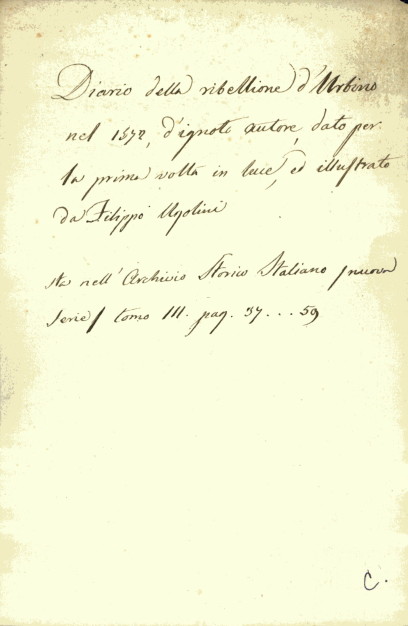 Diario della ribellione d'Urbino
nel 1572, d'ignoto autore, dato per
la prima volta in luce, ed illustrato
da Filippo Ugolini
sta nell' Archivio Storico Italiano / nuova
serie / tomo III. pag. 37 ... 59
C.